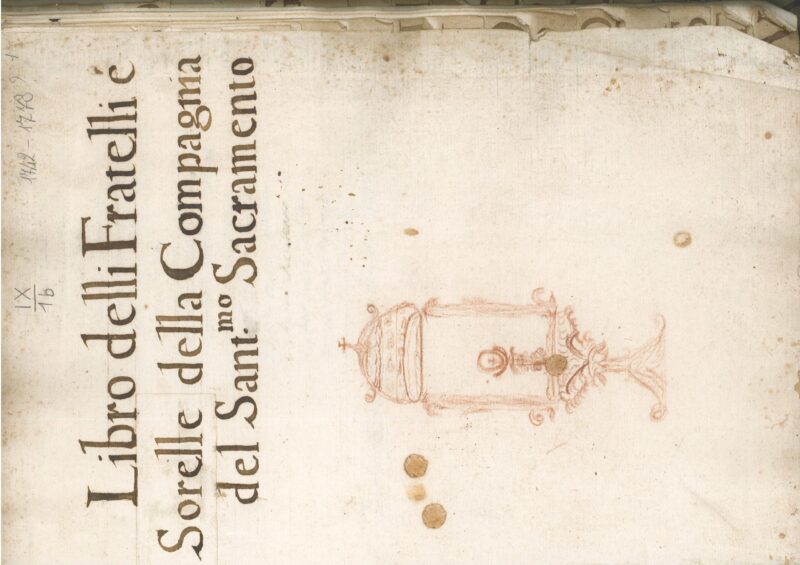 1742 - 1778
IX
1b
Libro delli Fratelli e
Sorelle della Compagnia
del Sant.mo Sacramento